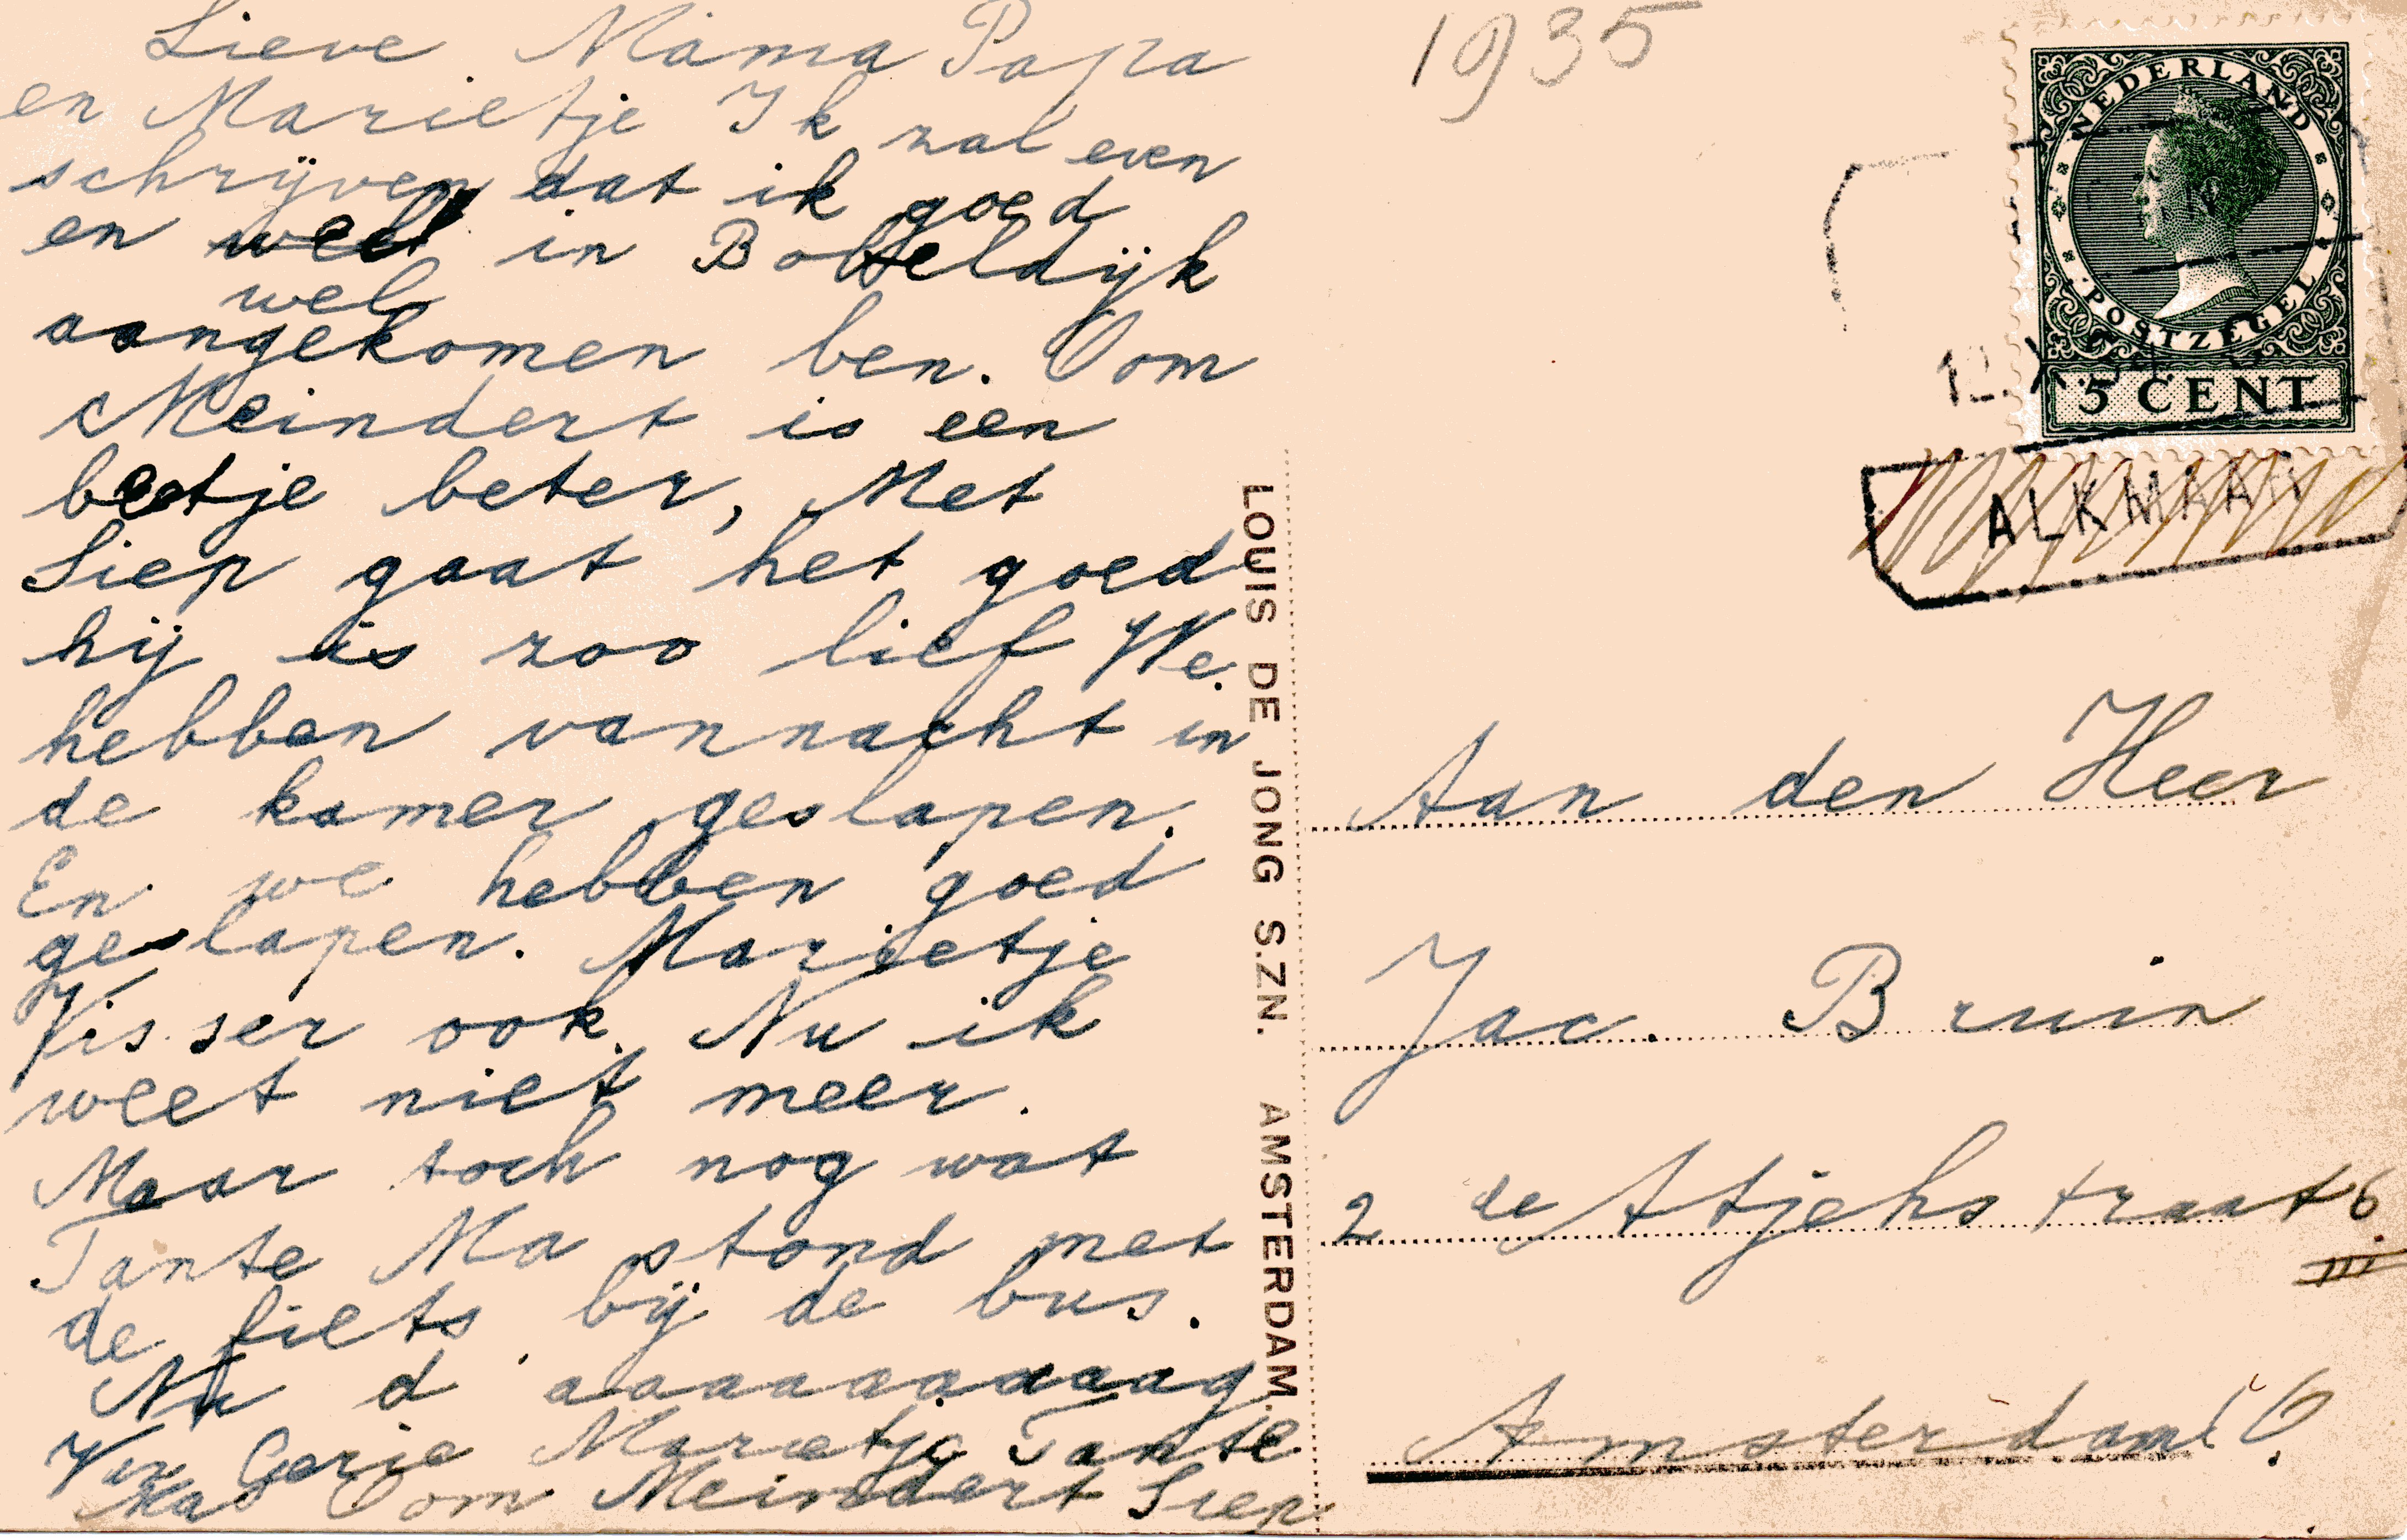 Lieve Mama Papa
en Marietje Ik zal even
schrijven dat ik goed
en weel in Bobeldijk
wel
aangekomen ben. Oom
Meindert is een
beetje beter, Met
Siep gaat het goed
hij is zoo lief We
hebben vannacht in
de kamer geslapen.
En we hebben goed
geslapen. Marietje
Visser ook. Nu ik
weet niet meer.
Maar toch nog wat
Tante Ma stond met
de fiets bij de bus.
Nu d aaaaaaaaaag
Van Gerie Marietje Tante
Ma Oom Meindert Siep
LOUIS DE JONG S.ZN. AMSTERDAM.
1935
NEDERLAND
POSTZEGEL
5 CENT
12.X
ALKMAAR
Aan den Heer
Jac. Bruin
2 de Atjehstraat 6
III
Amsterdam! O.